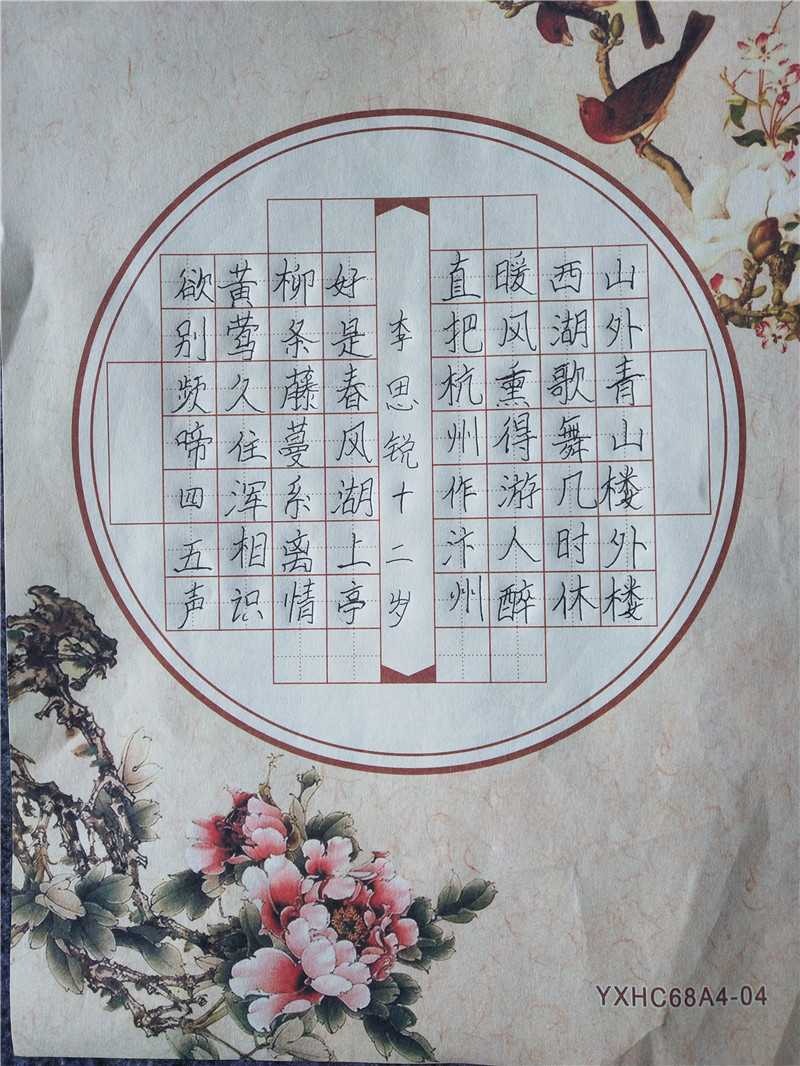 山外青山楼外楼
西湖歌舞几时休
暖风熏得游人醉
直把杭州作汴州
李思锐十二岁
好是春风湖上亭
柳条藤蔓系离情
黄莺久住浑相识
欲别频啼四五声
YXHC68A4-04